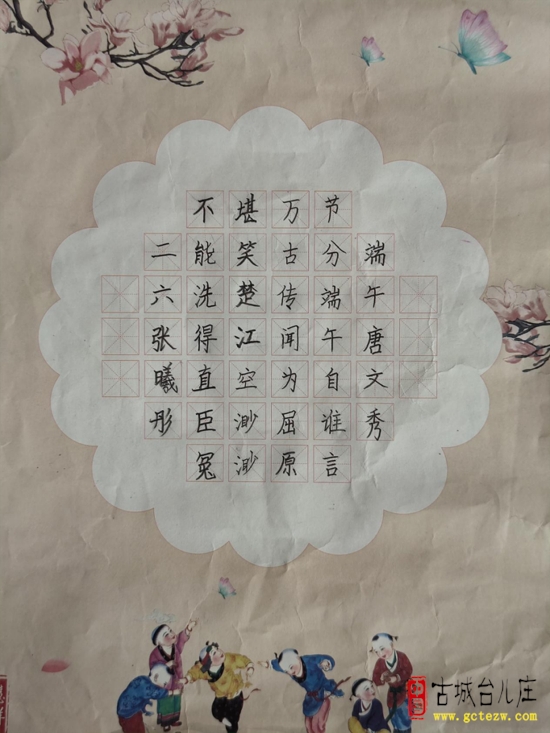 端午唐文秀
节分端午自谁言
万古传闻为屈原
堪笑楚江空渺渺
不能洗得直臣冤
二六张曦彤
古城台儿庄
www.gctezw.com